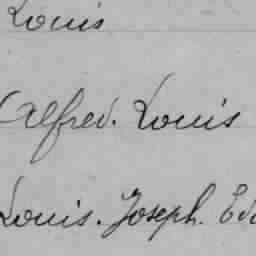 Louis
Alfred. Louis
Louis. Joseph.